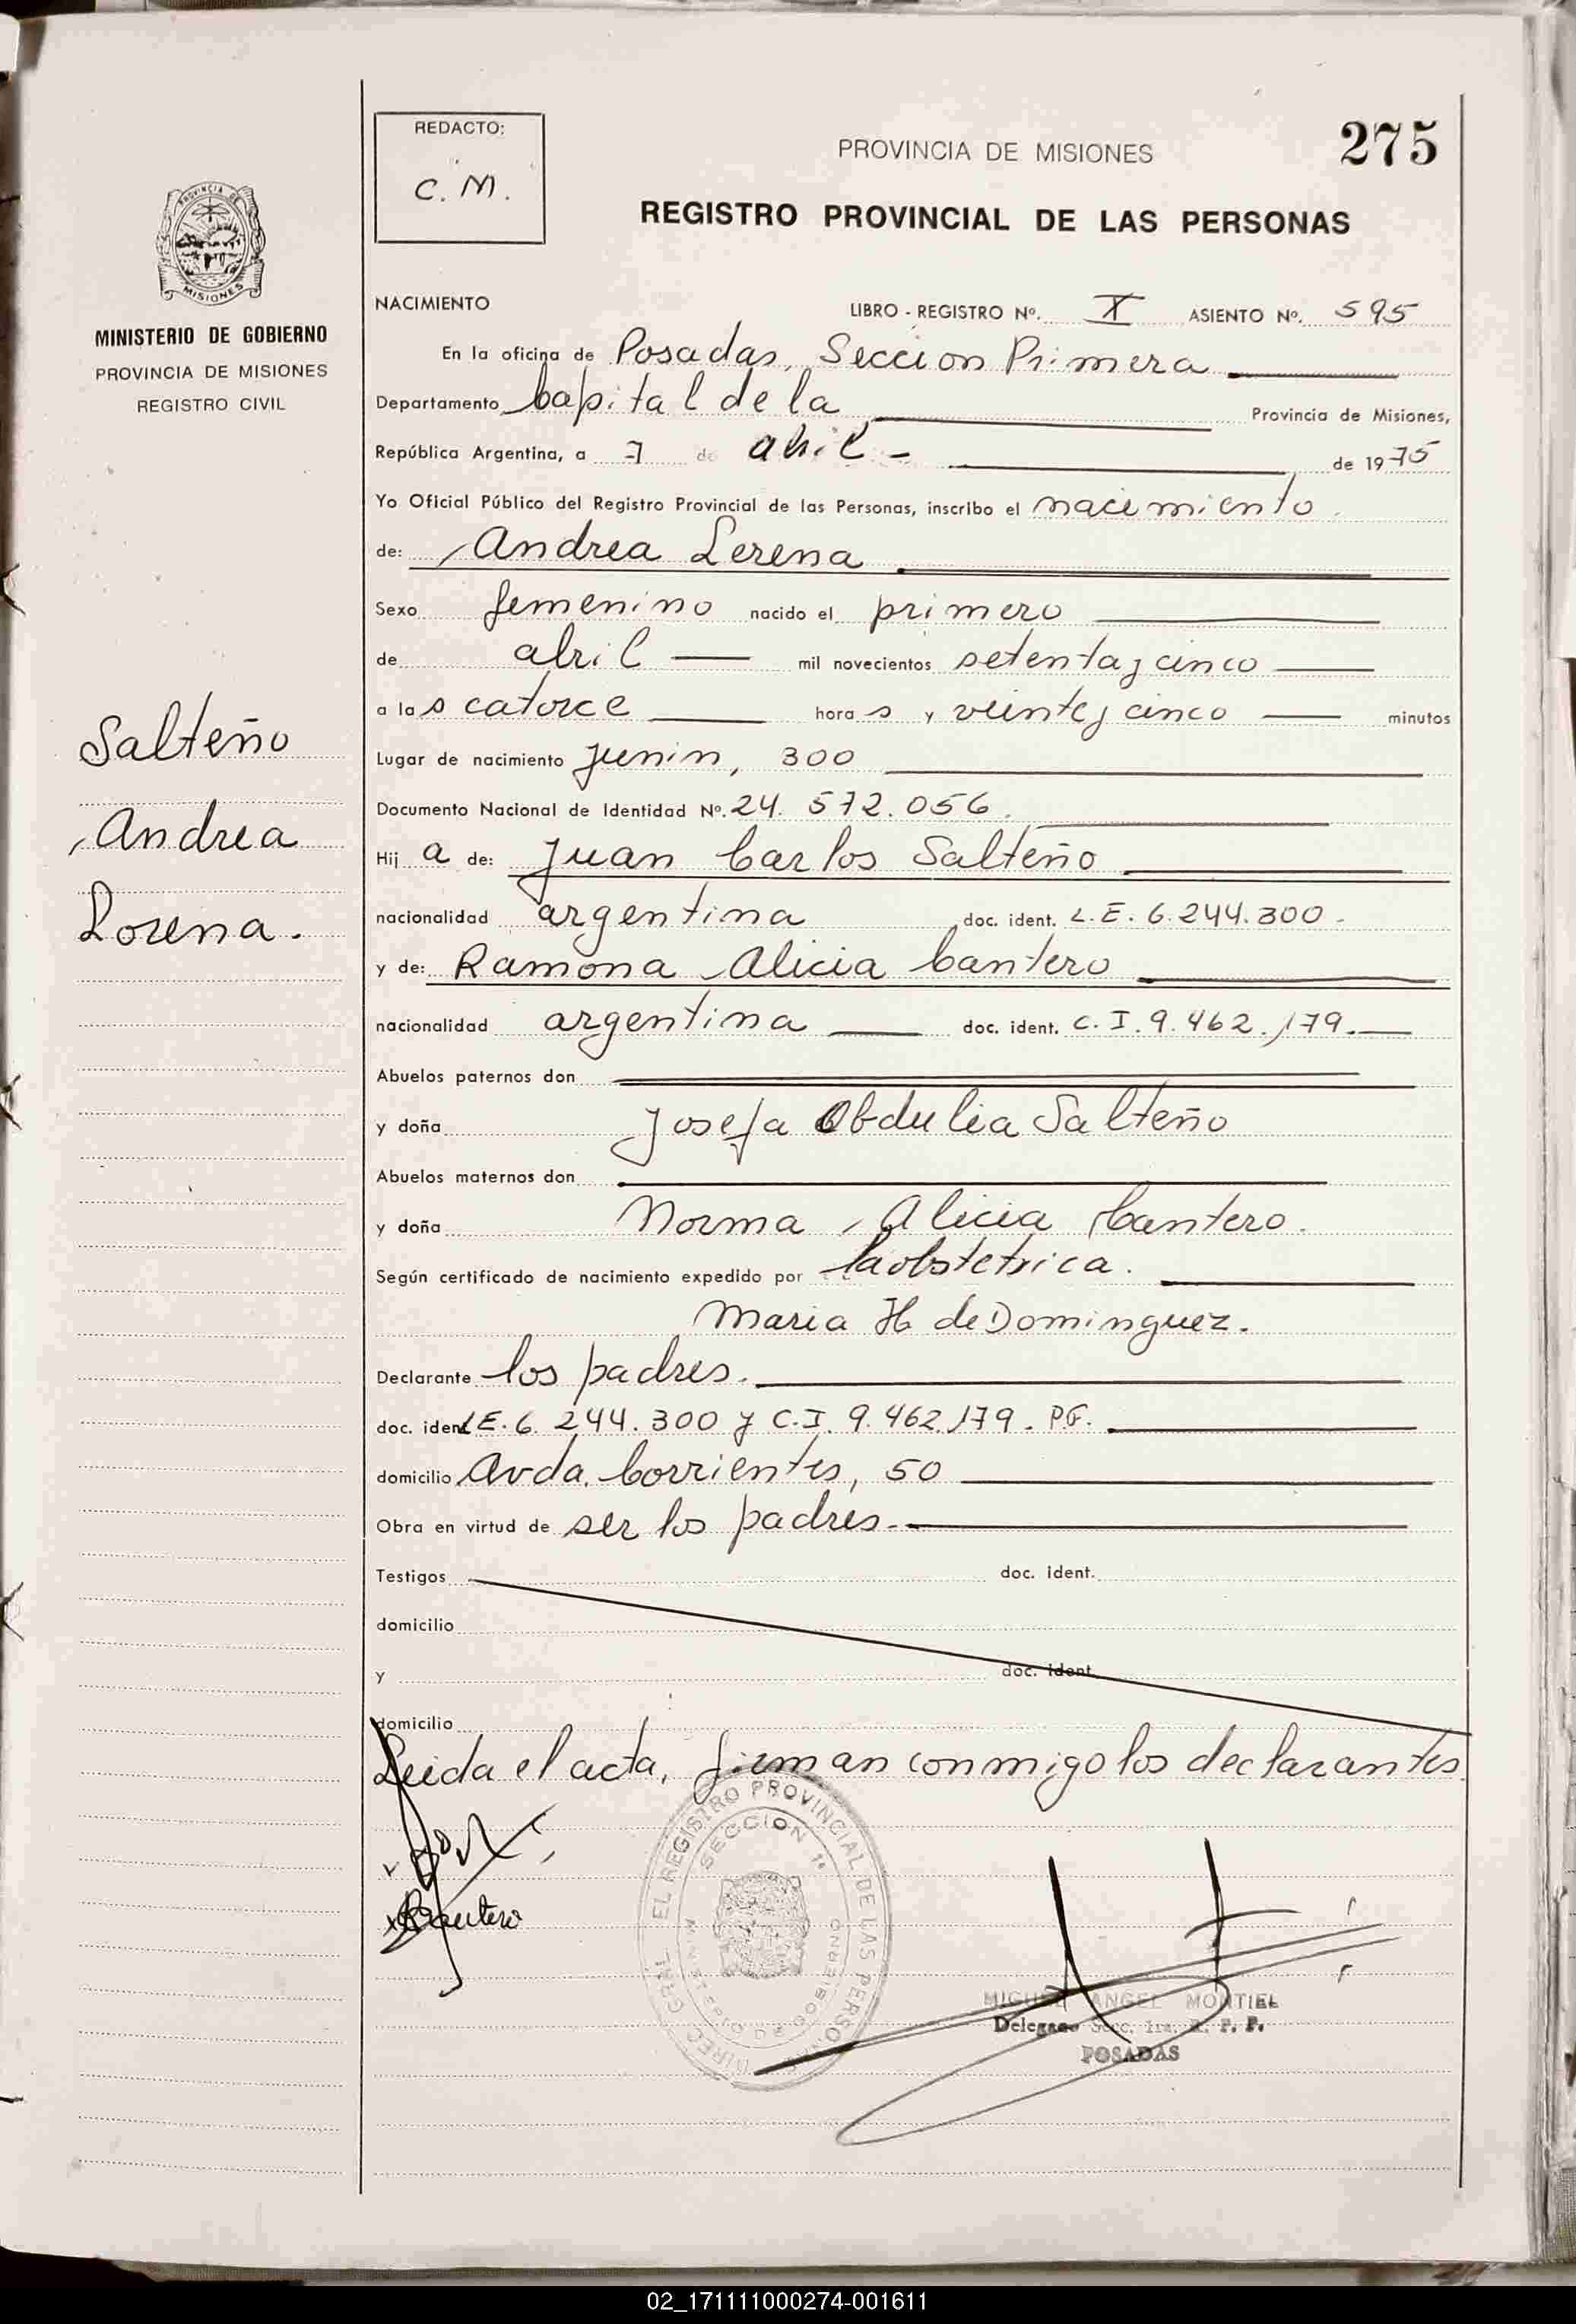 275
REDACTO:
C. M.
PROVINCIA DE MISIONES
REGISTRO PROVINCIAL DE LAS PERSONAS
PROVINCIA DE
MISIONES
MINISTERIO DE GOBIERNO
PROVINCIA DE MISIONES
REGISTRO CIVIL
Salteño
Andrea
Lorena.
NACIMIENTO LIBRO - REGISTRO Nº. I ASIENTO Nº. 595
En la oficina de Posadas, Seccion Primera
Departamento Capital de la Provincia de Misiones,
República Argentina, a 7 de abril - de 1975
Yo Oficial Público del Registro Provincial de las Personas, inscribo el nacimiento
de: Andrea Lerena
Sexo femenino nacido el primero
de abril mil novecientos setenta y cinco
a las catorce horas y veinte y cinco minutos
Lugar de nacimiento Junin, 300
Documento Nacional de Identidad Nº. 24. 572. 056.
Hij a de: Juan Carlos Salteño
nacionalidad argentina doc. ident. L.E. 6.244.300 -
y de: Ramona Alicia Cantero
nacionalidad argentina doc. ident. C. I. 9. 462. 179.
Abuelos paternos don
y doña Josefa Obdulia Salteño
Abuelos maternos don
y doña Norma Alicia Cantero.
Según certificado de nacimiento expedido por la obstetrica.
Maria H de Dominguez.
Declarante los padres.
doc. ident L E. 6. 244. 300 y C. I. 9. 462. 179. P.F.
domicilio Avda. Corrientes, 50
Obra en virtud de ser los padres.
Testigos doc. ident.
domicilio
y doc. ident.
domicilio
Leida el acta, firman conmigo los declarantes
DIREC. GRAL. EL REGISTRO PROVINCIAL DE LAS PERSONAS
SECCION 1ª
MINISTERIO DE GOBIERNO
Cantero
MIGUEL ANGEL MONTIEL
Delegado Secc. 1ra. R. P. P.
POSADAS
02_171111000274-001611